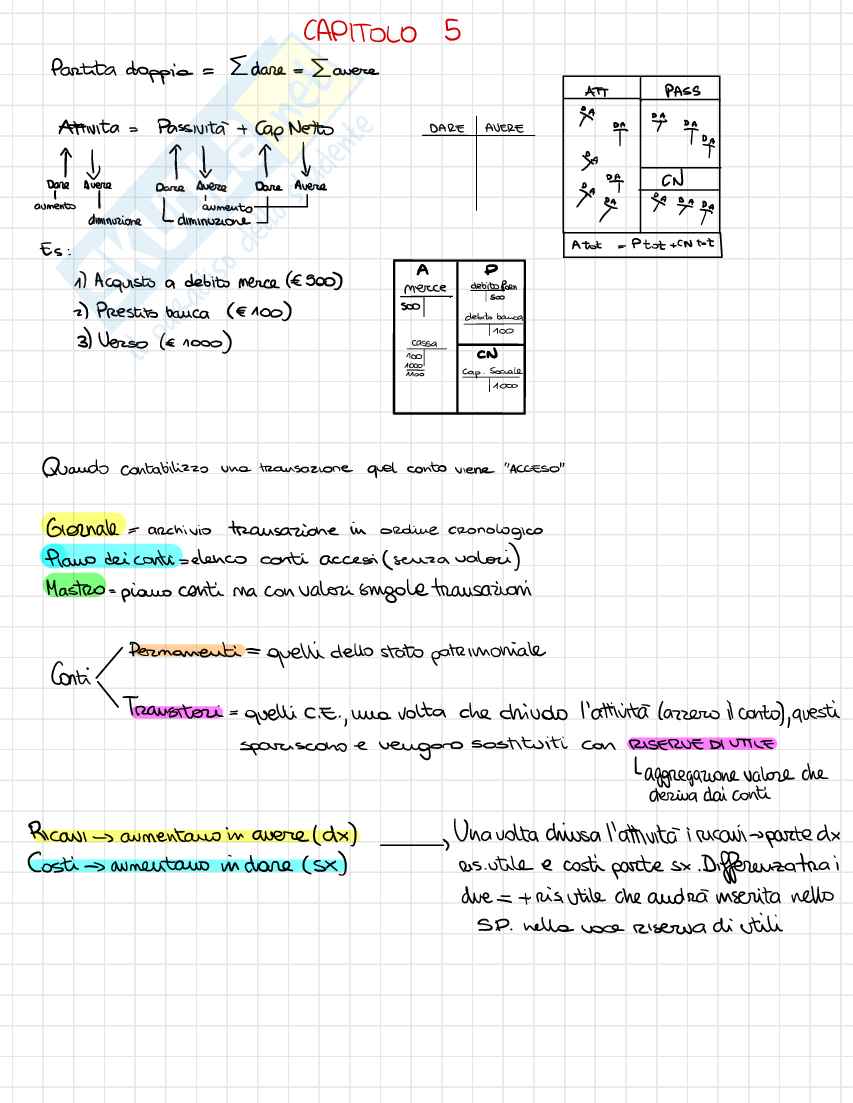 CAPITOLO 5
Partita doppia = Σ dare = Σ avere
Attivita = Passività + Cap Netto
Dare Avere Dare Avere Dare Avere
aumento aumento
diminuzione diminuzione
DARE AVERE
ATT PASS
D A D A D A D A D A
D A D A
D A D A D A
CN
D A D A D A
A tot = P tot + CN tot
Es:
1) Acquisto a debito merce (€ 500)
2) Prestito banca (€ 100)
3) Verso (€ 1000)
A P
merce debito forn
500 500
debito banca
100
cassa CN
100 cap. Sociale
1000 1000
1100
Quando contabilizzo una transazione quel conto viene "ACCESO"
Giornale = archivio transazione in ordine cronologico
Piano dei conti = elenco conti accesi (senza valori)
Mastro = piano conti ma con valori singole transazioni
Conti
Permamenti = quelli dello stato patrimoniale
Transitori = quelli C.E., una volta che chiudo l'attività (azzero il conto), questi
spariscono e vengono sostituiti con RISERVE DI UTILE
aggregazione valore che
deriva dai conti
Ricavi → aumentano in avere (dx)
Costi → aumentano in dare (sx)
Una volta chiusa l'attività i ricavi → parte dx
ris. utile e costi parte sx. Differenza tra i
due = + ris utile che andrà inserita nello
S.P. nella voce riserva di utili
skuola.net
il paradiso dello studente